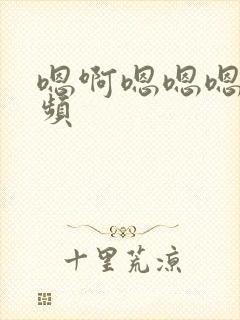 嗯啊嗯嗯嗯
频
十里荒凉